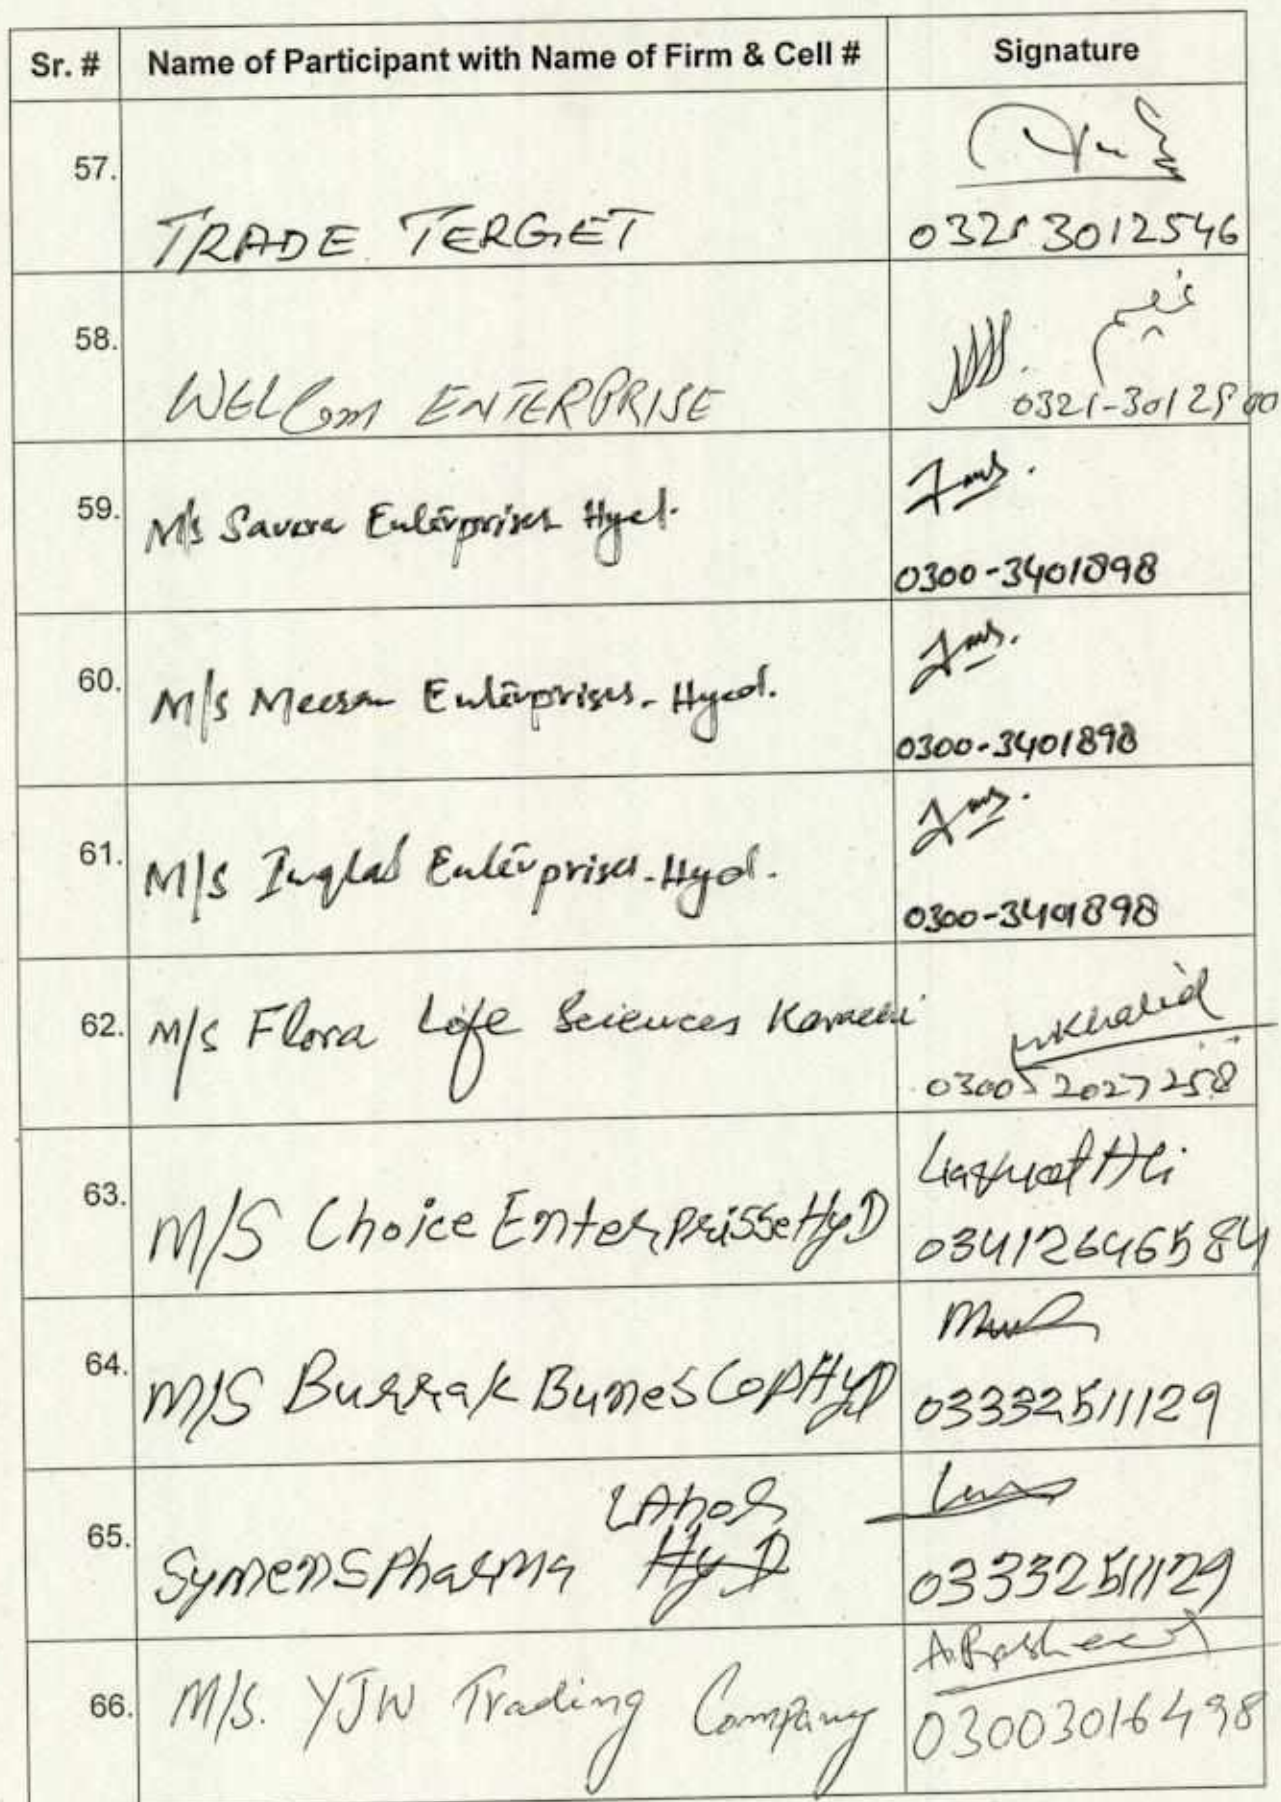 Sr. # Name of Participant with Name of Firm & Cell # Signature
57.
TRADE TERGET
0321 3012546
58.
WELCom ENTERPRISE
نعیم
0321-3012500
59. M/s Savera Enterprises Hyd.
0300-3401898
60. M/s Meesam Enterprises - Hyd.
0300-3401898
61. M/s Inqlab Enterprises - Hyd.
0300-3401898
62. M/s Flora Life Sciences Karachi
Khalid
0300 2027258
63. M/S Choice Enterprisse HyD
Liaquat Ali
03412646584
64. M/S Burrak Bunes Cop HyD
03332511129
65. Symens Pharma Lahor HyD
03332511129
66. M/S. YJW Trading Company
A.Rasheed
03003016498